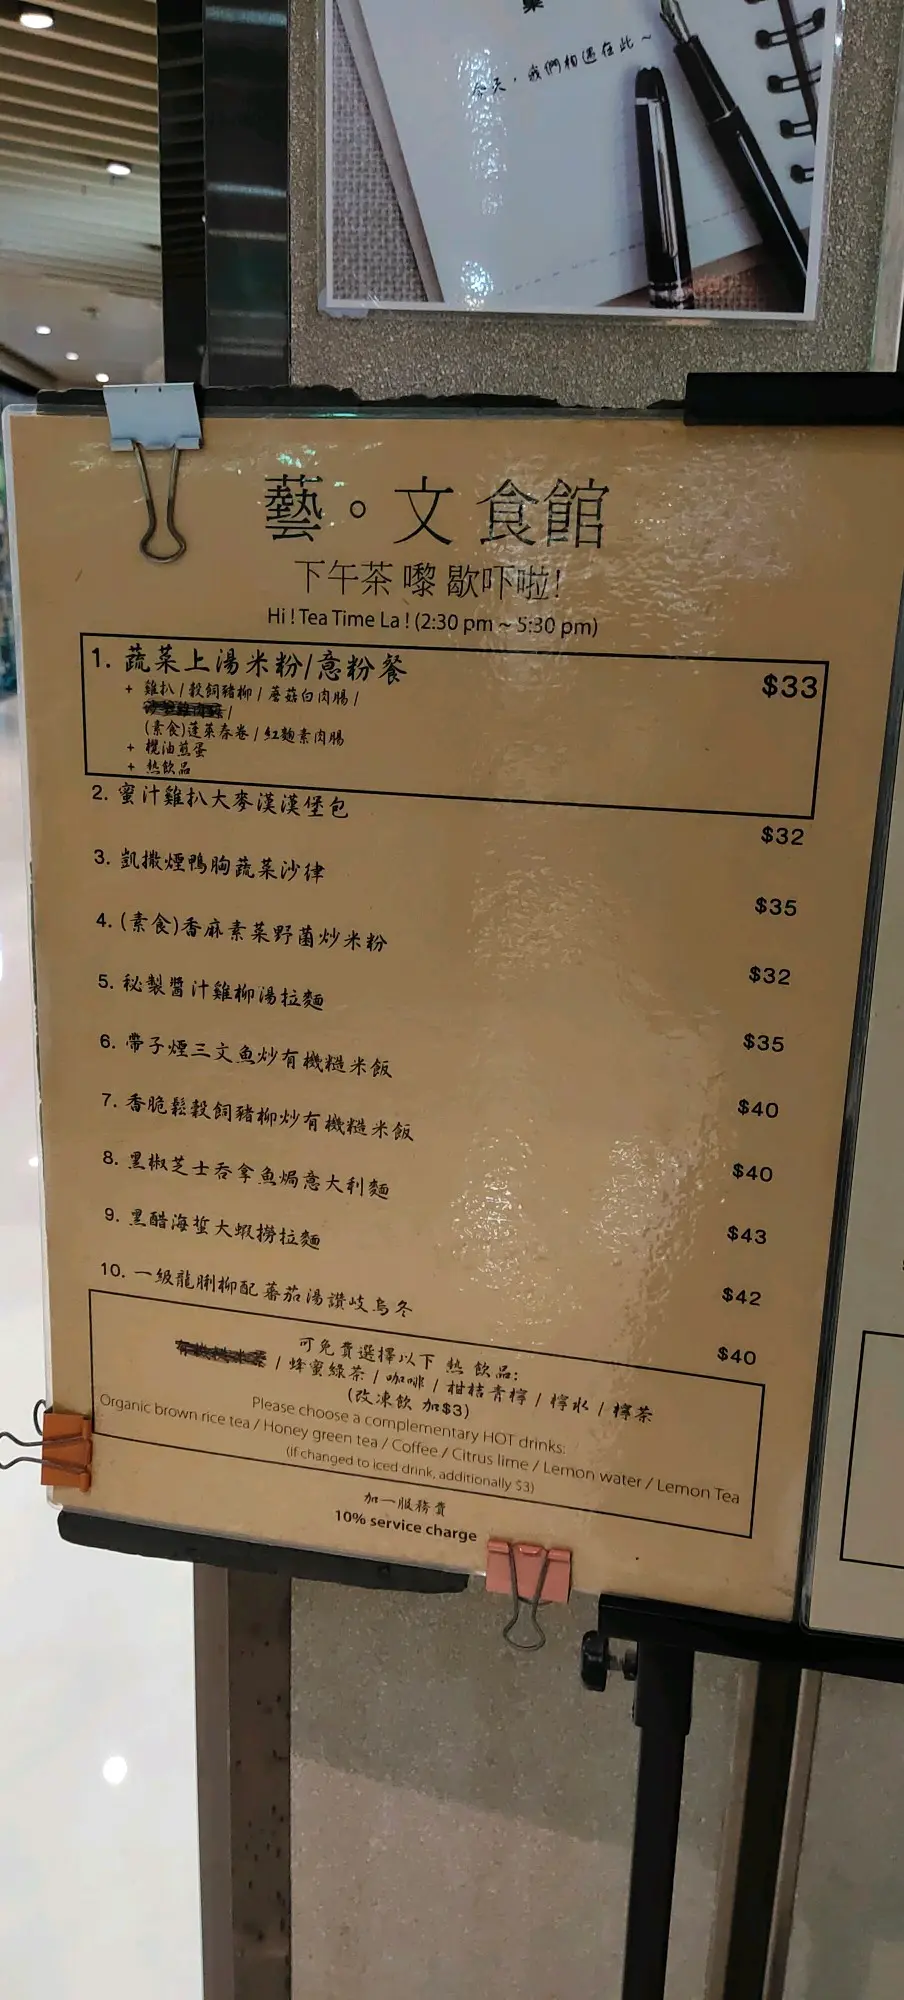 今天，我們相遇在此～
藝。文食館
下午茶 嚟 歇吓啦!
Hi ! Tea Time La ! (2:30 pm ~ 5:30 pm)
1. 蔬菜上湯米粉/意粉餐 $33
+ 雞扒 / 穀飼豬柳 / 蘑菇白肉腸 /
/
(素食)蓬萊春卷 / 紅麴素肉腸
+ 欖油煎蛋
+ 熱飲品
2. 蜜汁雞扒大麥漢漢堡包 $32
3. 凱撒煙鴨胸蔬菜沙律 $35
4. (素食)香麻素菜野菌炒米粉 $32
5. 秘製醬汁雞柳湯拉麵 $35
6. 帶子煙三文魚炒有機糙米飯 $40
7. 香脆鬆穀飼豬柳炒有機糙米飯 $40
8. 黑椒芝士吞拿魚焗意大利麵 $43
9. 黑醋海蜇大蝦撈拉麵 $42
10. 一級龍脷柳配蕃茄湯讚岐烏冬 $40
可免費選擇以下 熱 飲品:
/ 蜂蜜綠茶 / 咖啡 / 柑桔青檸 / 檸水 / 檸茶
(改凍飲 加$3)
Please choose a complementary HOT drinks:
Organic brown rice tea / Honey green tea / Coffee / Citrus lime / Lemon water / Lemon Tea
(If changed to iced drink, additionally $3)
加一服務費
10% service charge